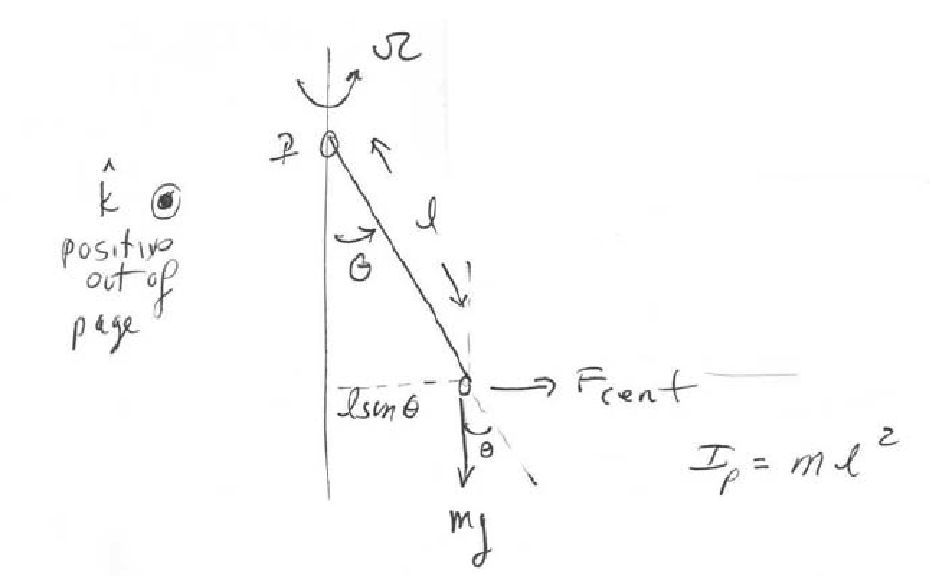 Ω
P
k̂
l
positive
out of
page
θ
l sin θ
F cent
θ
I_p = m l²
mg